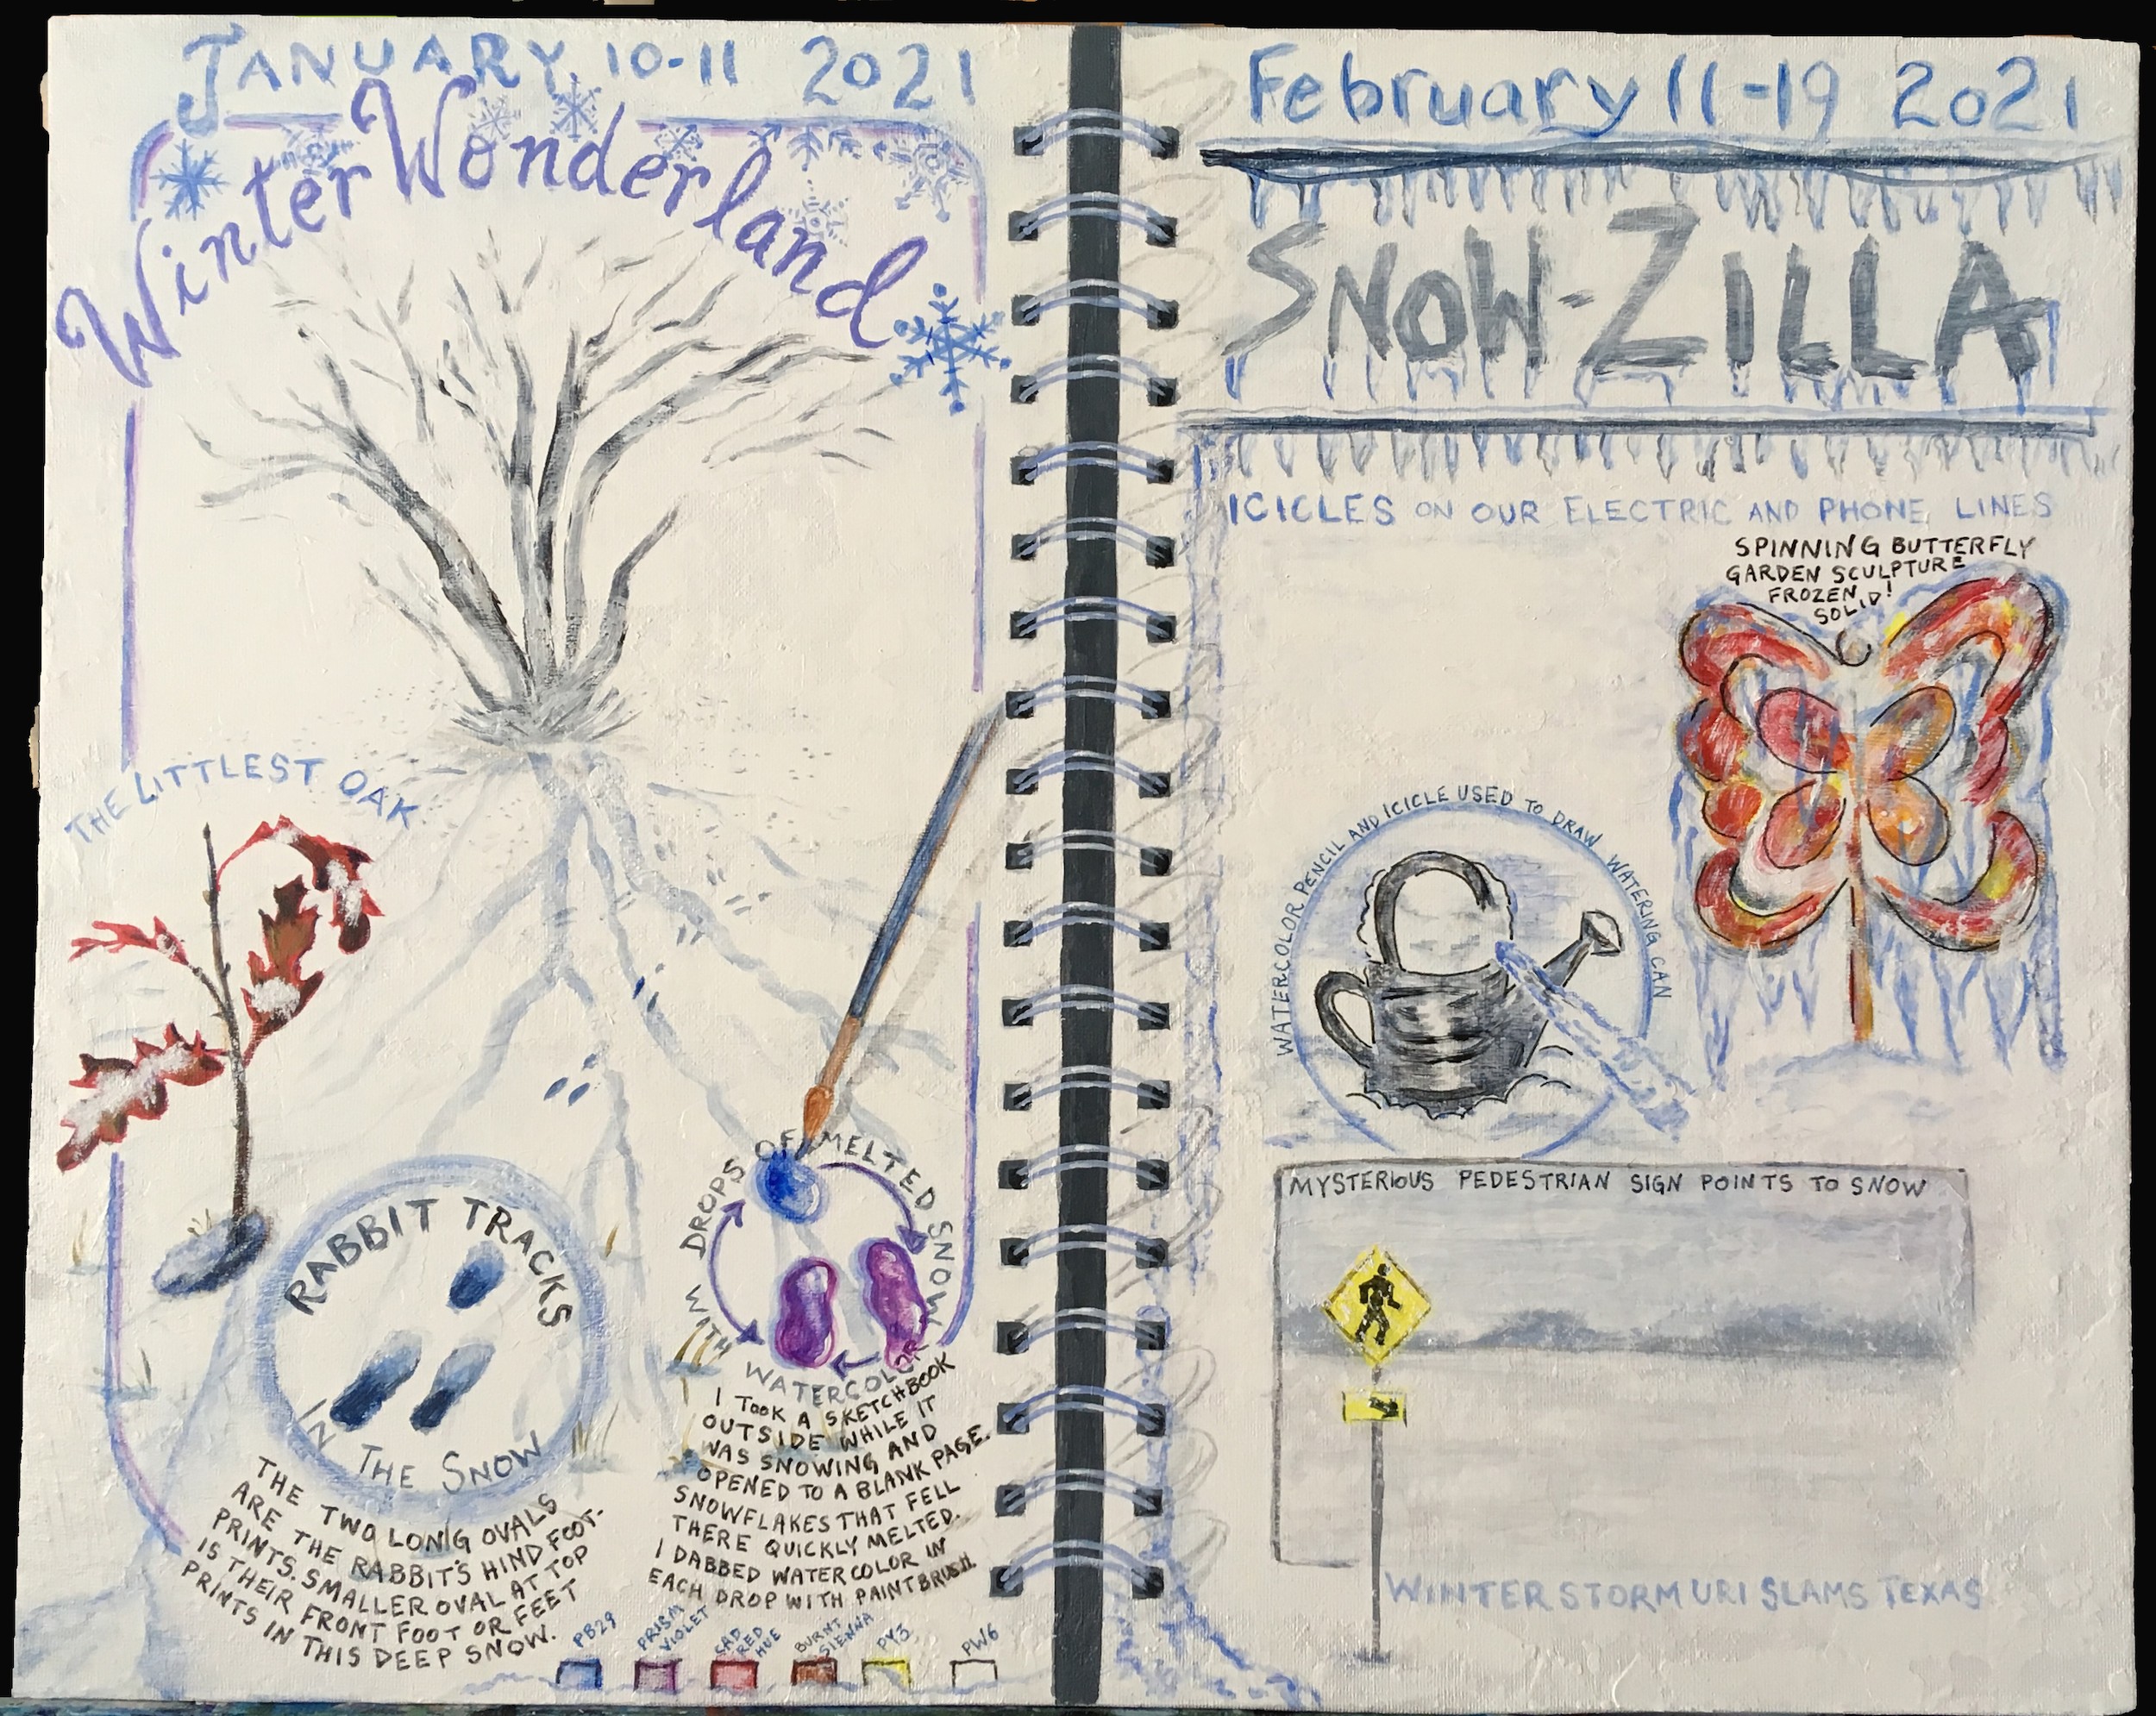 JANUARY 10-11 2021
Winter Wonderland
THE LITTLEST OAK
RABBIT TRACKS
IN THE SNOW
THE TWO LONG OVALS
ARE THE RABBIT'S HIND FOOT-
PRINTS. SMALLER OVAL AT TOP
IS THEIR FRONT FOOT OR FEET
PRINTS IN THIS DEEP SNOW.
DROPS OF MELTED SNOW
WITH WATERCOLOR
I TOOK A SKETCHBOOK
OUTSIDE WHILE IT
WAS SNOWING AND
OPENED TO A BLANK PAGE.
SNOWFLAKES THAT FELL
THERE QUICKLY MELTED.
I DABBED WATERCOLOR IN
EACH DROP WITH PAINTBRUSH.
PB29
PRISM
VIOLET
CAD
RED
HUE
BURNT
SIENNA
PY3
PW6
February 11-19 2021
SNOW-ZILLA
ICICLES ON OUR ELECTRIC AND PHONE LINES
SPINNING BUTTERFLY
GARDEN SCULPTURE
FROZEN
SOLID!
WATERCOLOR PENCIL AND ICICLE USED TO DRAW WATERING CAN
MYSTERIOUS PEDESTRIAN SIGN POINTS TO SNOW
WINTER STORM URI SLAMS TEXAS